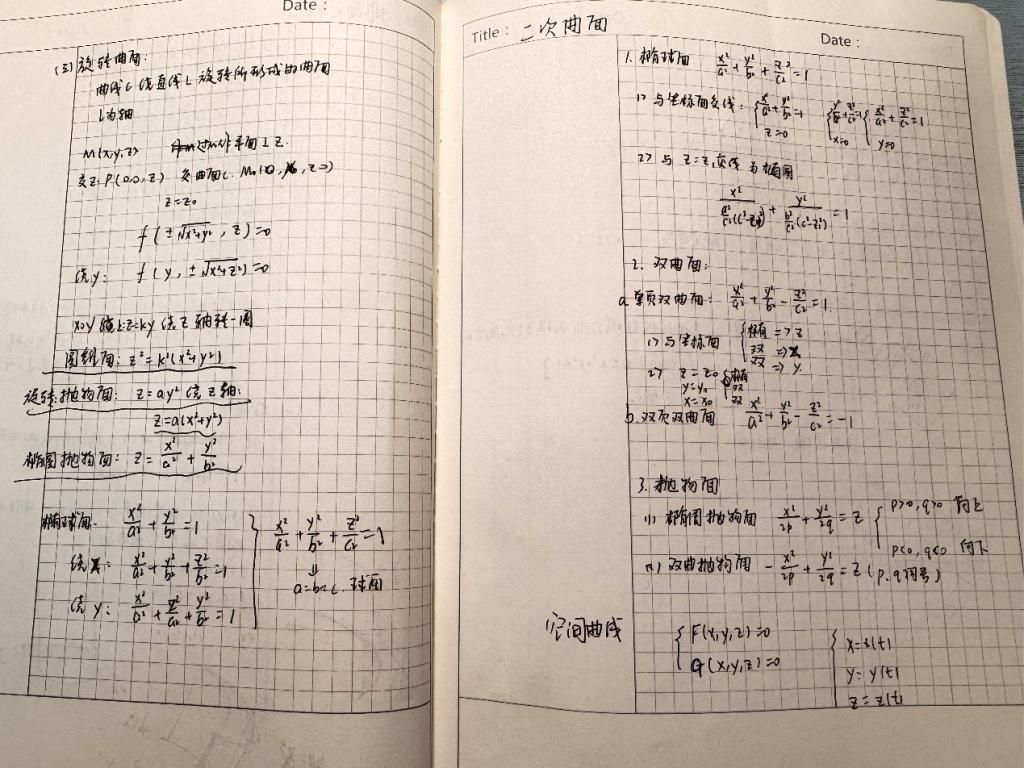 Date :
(三) 旋转曲面:
曲线 C 绕直线 L 旋转所形成的曲面
L为轴
M(x,y,z) 作平面⊥Z.
交Z: P(0,0,Z) 交曲面C.
z=z₀
f(±√(x²+y²), z)=0
绕y: f(y, ±√(x²+z²))=0
xoy 线L:z=ky 绕 z 轴转一周
圆锥面: z²=k²(x²+y²)
旋转抛物面: z=ay² 绕 z 轴:
z=a(x²+y²)
椭圆抛物面: z=x²/a²+y²/b²
椭球面: x²/a²+y²/b²=1
绕x: x²/a²+y²/b²+z²/b²=1
绕y: x²/a²+z²/a²+y²/b²=1
x²/a²+y²/b²+z²/c²=1
⇓
a=b=c 球面
Title : 二次曲面
Date :
1. 椭球面 x²/a²+y²/b²+z²/c²=1
1> 与坐标面交线: { x²/a²+y²/b²=1 z=0 { y²/b²+z²/c²=1 x=0 { x²/a²+z²/c²=1 y=0
2> 与 z=z₁交线为椭圆
x²/(a²/c²(c²-z₁²)) + y²/(b²/c²(c²-z₁²)) =1
2. 双曲面:
a. 单页双曲面: x²/a²+y²/b²-z²/c²=1.
1> 与坐标面 { 椭 => z 双 => x 双 => y
2> z=z₀ 椭
y=y₀ 双
x=x₀ 双
b. 双页双曲面 x²/a²+y²/b²-z²/c²=-1
3. 抛物面
(1) 椭圆抛物面 x²/2p+y²/2q=z { p>0, q>0 向上
p<0, q<0 向下
(2) 双曲抛物面 -x²/2p+y²/2q=z (p.q同号)
空间曲线
{ F(x,y,z)=0
G(x,y,z)=0
{ x=x(t)
y=y(t)
z=z(t)